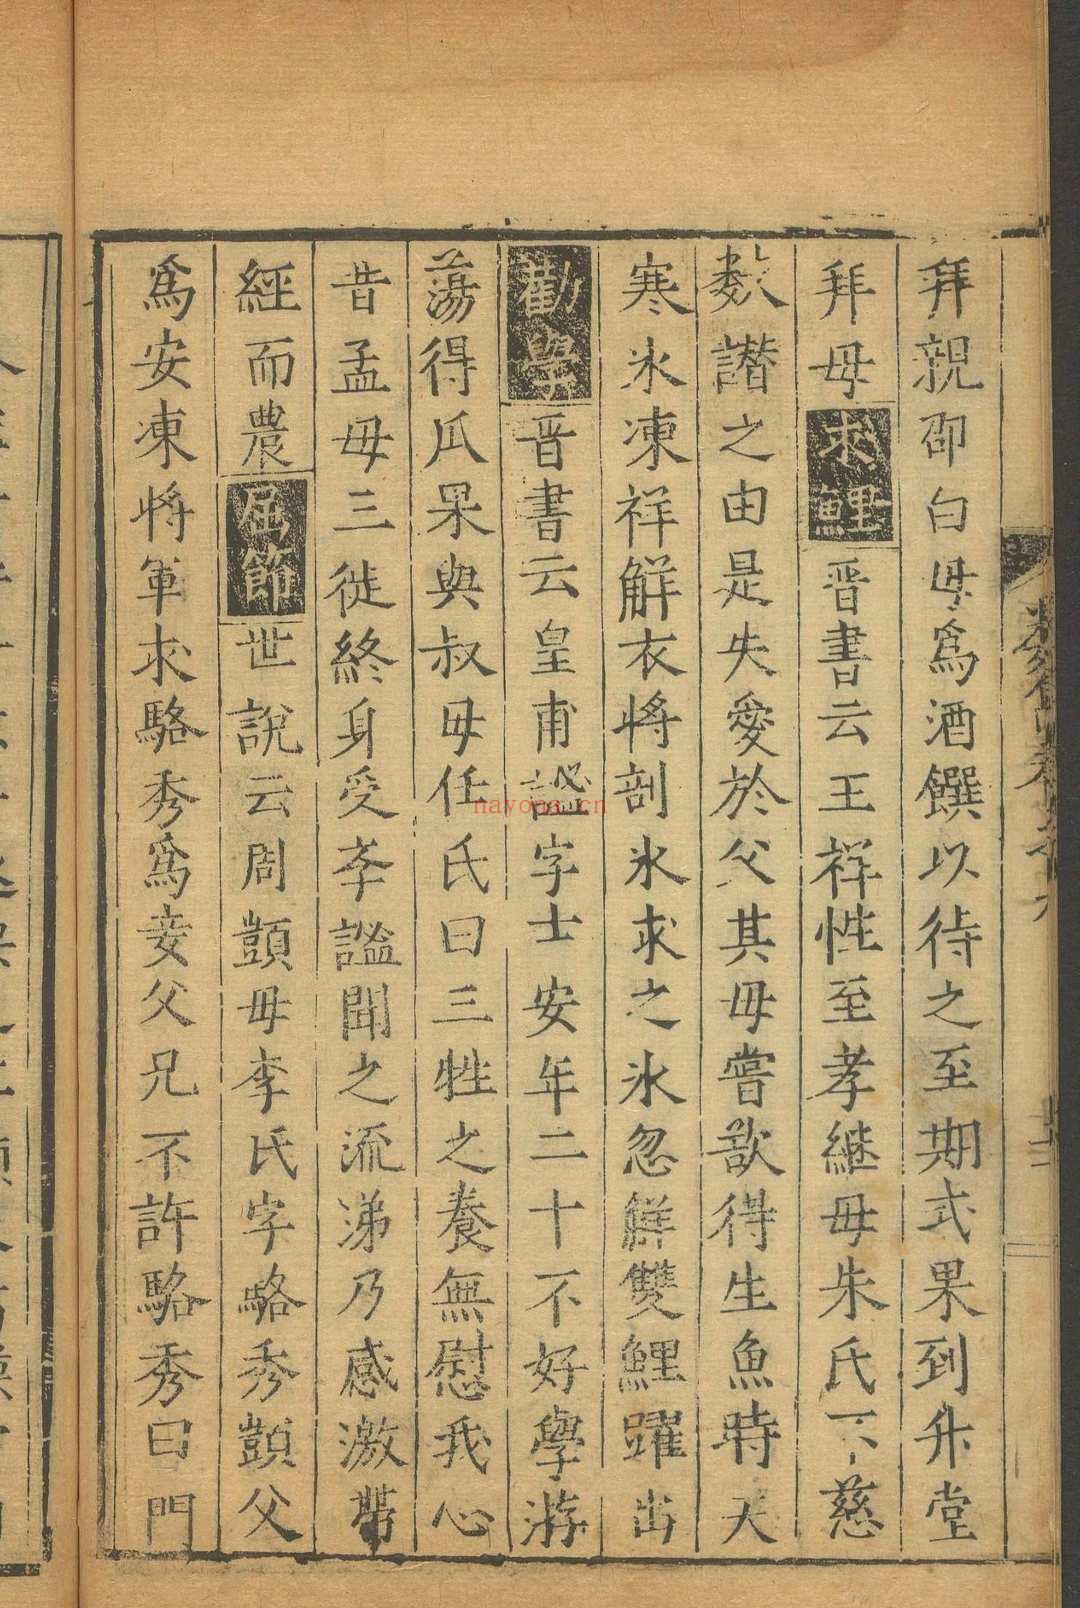 拜親卲白母爲酒饌以待之至期式果到升堂
拜母求鯉晋書云王祥性至孝繼母朱氏不慈
數譖之由是失愛於父其母嘗欲得生魚時天
寒氷凍祥解衣將剖氷求之氷忽觧雙鯉躍出
勸學晋書云皇甫謐字士安年二十不好學游
蕩得瓜果與叔母任氏曰三牲之養無慰我心
昔孟母三徙終身受孝謐聞之流涕乃感激帶
經而農屈節世說云周顗母李氏字絡秀顗父
爲安東將軍求駱秀爲妾父兄不許駱秀曰門
nayona.cn